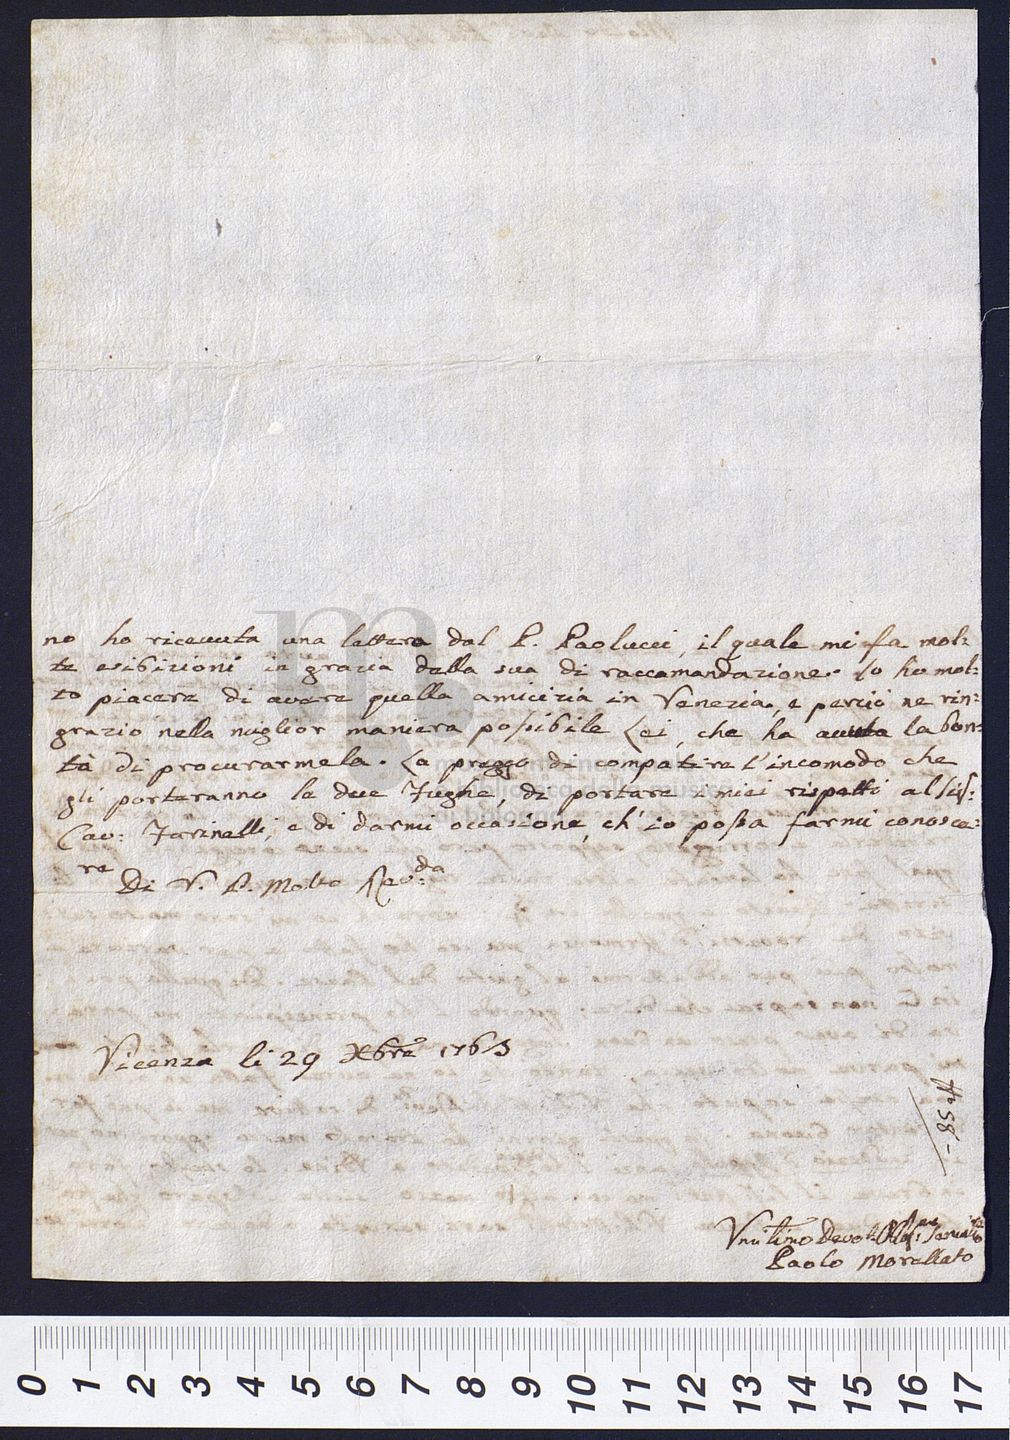 no ho ricevuta una lettera dal P. Paolucci, il quale mi fa mol:
te esibizioni in grazia della sua di raccamandazione. Io ho mol:
to piacere di avere quella amicizia in Venezia, e perciò ne rin:
grazio nella miglior maniera possibile Lei, che ha avuta la bon:
tà di procurarmela. La preggo di compatire l'incomodo che
gli porteranno le due Fughe, di portare i miei rispetti al Sig:
Cav: Farinelli, e di darmi occasione, ch'io possa farmi conosce:
re
Di V. P. Molto Rev:da
Vicenza li 29 Xbre 1763
H 58 -
Umilimo Devot: Obl: Servit
Paolo Morellato
0 1 2 3 4 5 6 7 8 9 10 11 12 13 14 15 16 17